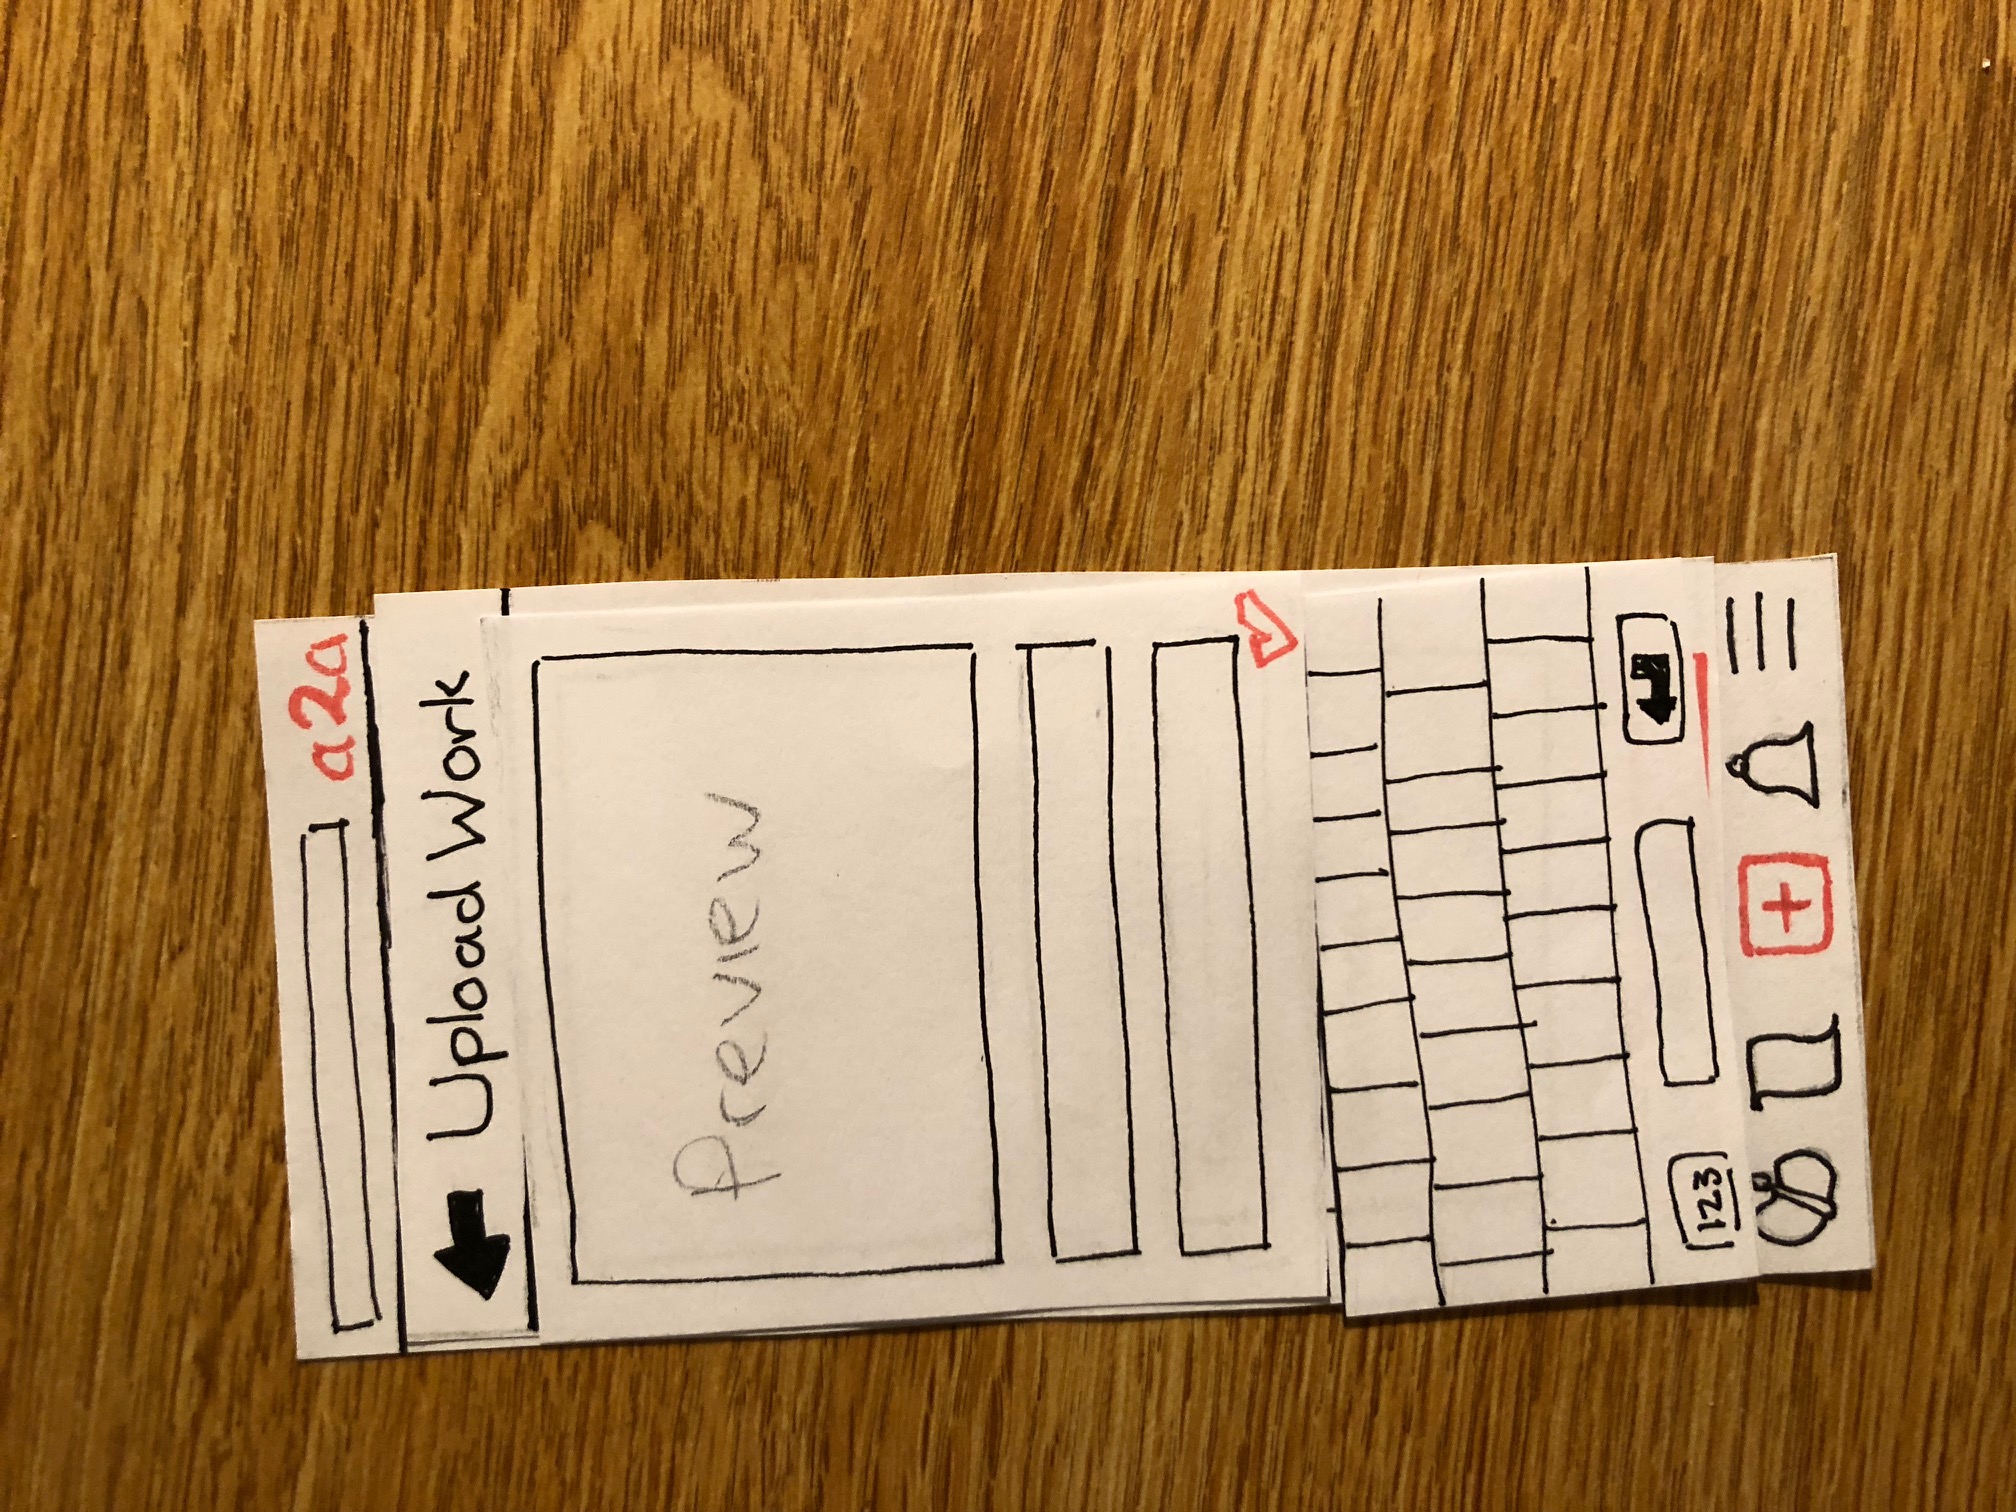 a2a
Upload Work
Preview
123